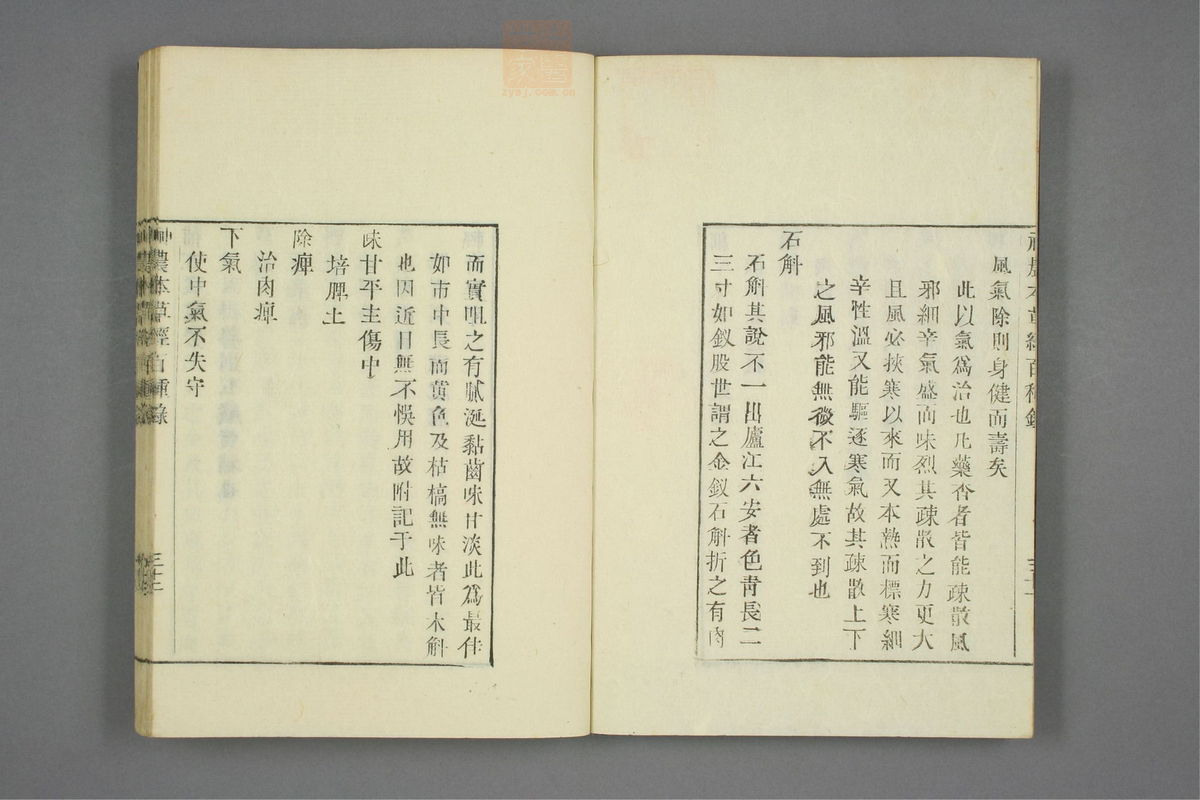 神農本草經百種錄
風氣除則身健而壽矣
此以氣爲治也凡藥香者皆能疎散風
邪細辛氣盛而味烈其疎散之力更大
且風必挾寒以來而又本熱而標寒細
辛性溫又能驅逐寒氣故其疎散上下
之風邪能無微不入無處不到也
石斛
石斛其說不一出廬江六安者色青長二
三寸如釵股世謂之金釵石斛折之有肉
而實咀之有膩涎黏齒味甘淡此爲最佳
如市中長而黃色及枯槁無味者皆木斛
也因近日無不悞用故附記于此
味甘平主傷中
培脾土
除痹
治肉痹
下氣
使中氣不失守
神農本草經百種錄
三十二
zysj.com.cn